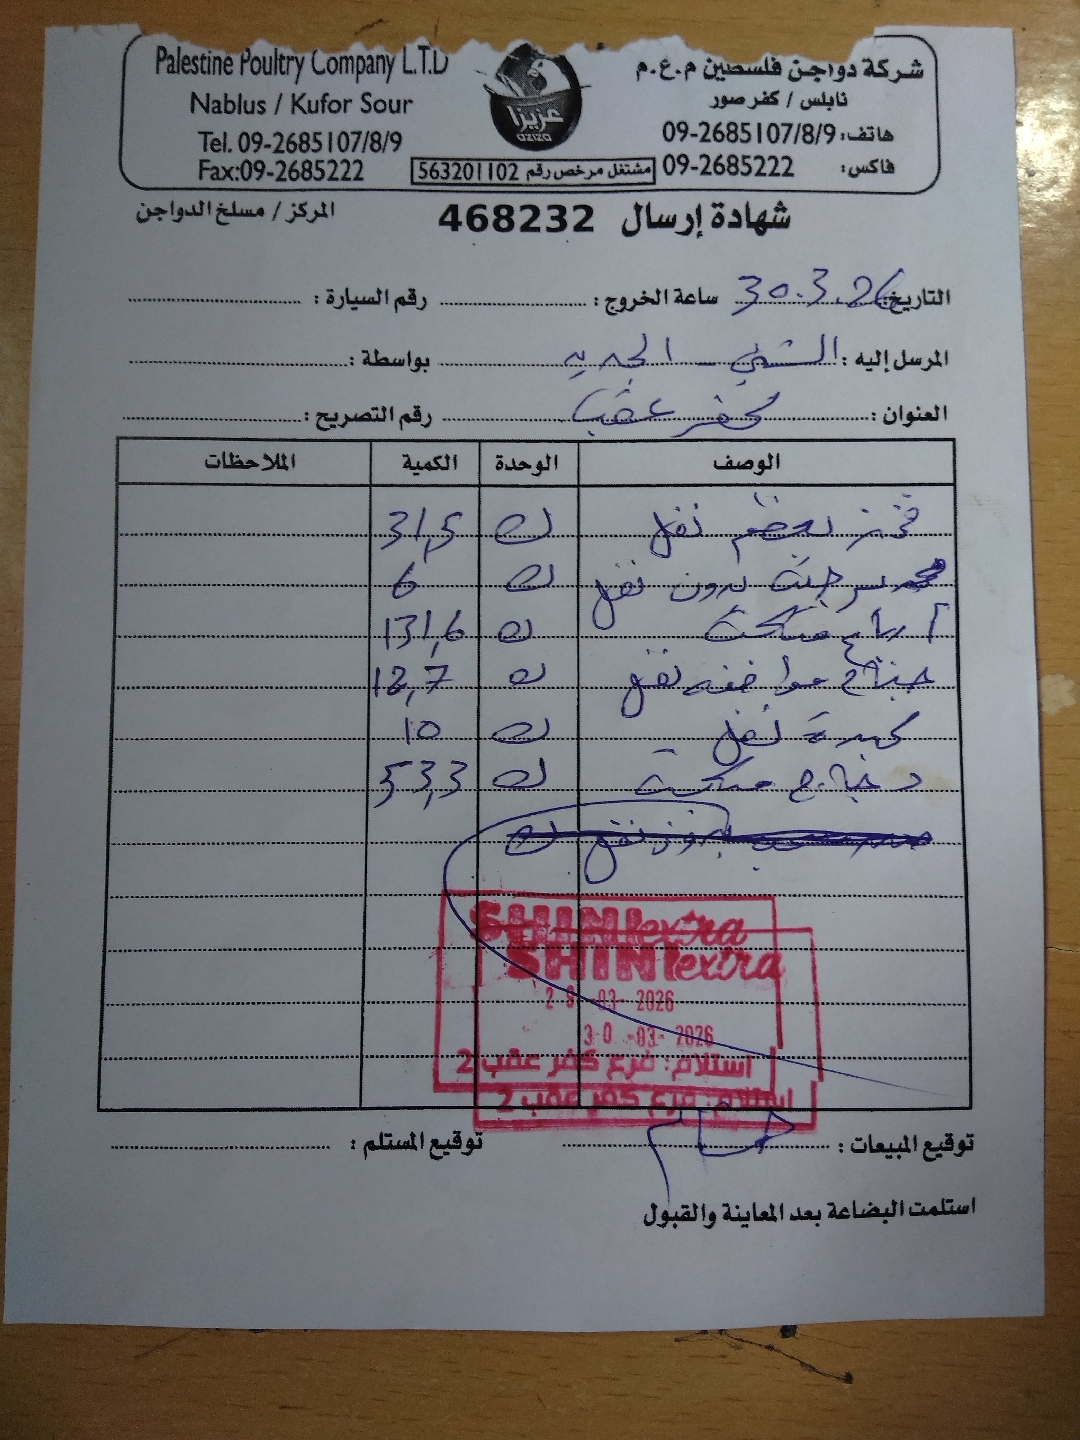 Palestine Poultry Company L.T.D
شركة دواجن فلسطين م.ع.م
Nablus / Kufor Sour
نابلس / كفر صور
Tel. 09-2685107/8/9
هاتف: 09-2685107/8/9
Fax:09-2685222
فاكس: 09-2685222
عزيزا
AZIZA
مشتغل مرخص رقم 563201102
شهادة إرسال 468232
المركز / مسلخ الدواجن
التاريخ: 30.3.26 ساعة الخروج: رقم السيارة:
المرسل إليه: الشني - الجديد بواسطة:
العنوان: كفر عقب رقم التصريح:
الوصف الوحدة الكمية الملاحظات
بعظم نفل ك 31,5
بدون نفل ك 6
ك 131,6
جناح نفل ك 12,7
كبدة نفل ك 10
دجاج ك 53,3
بدون نفل ك
SHINI extra
SHINI extra
29-03-2026
30-03-2026
استلام: فرع كفر عقب 2
استلام: فرع كفر عقب 2
توقيع المبيعات: توقيع المستلم:
استلمت البضاعة بعد المعاينة والقبول